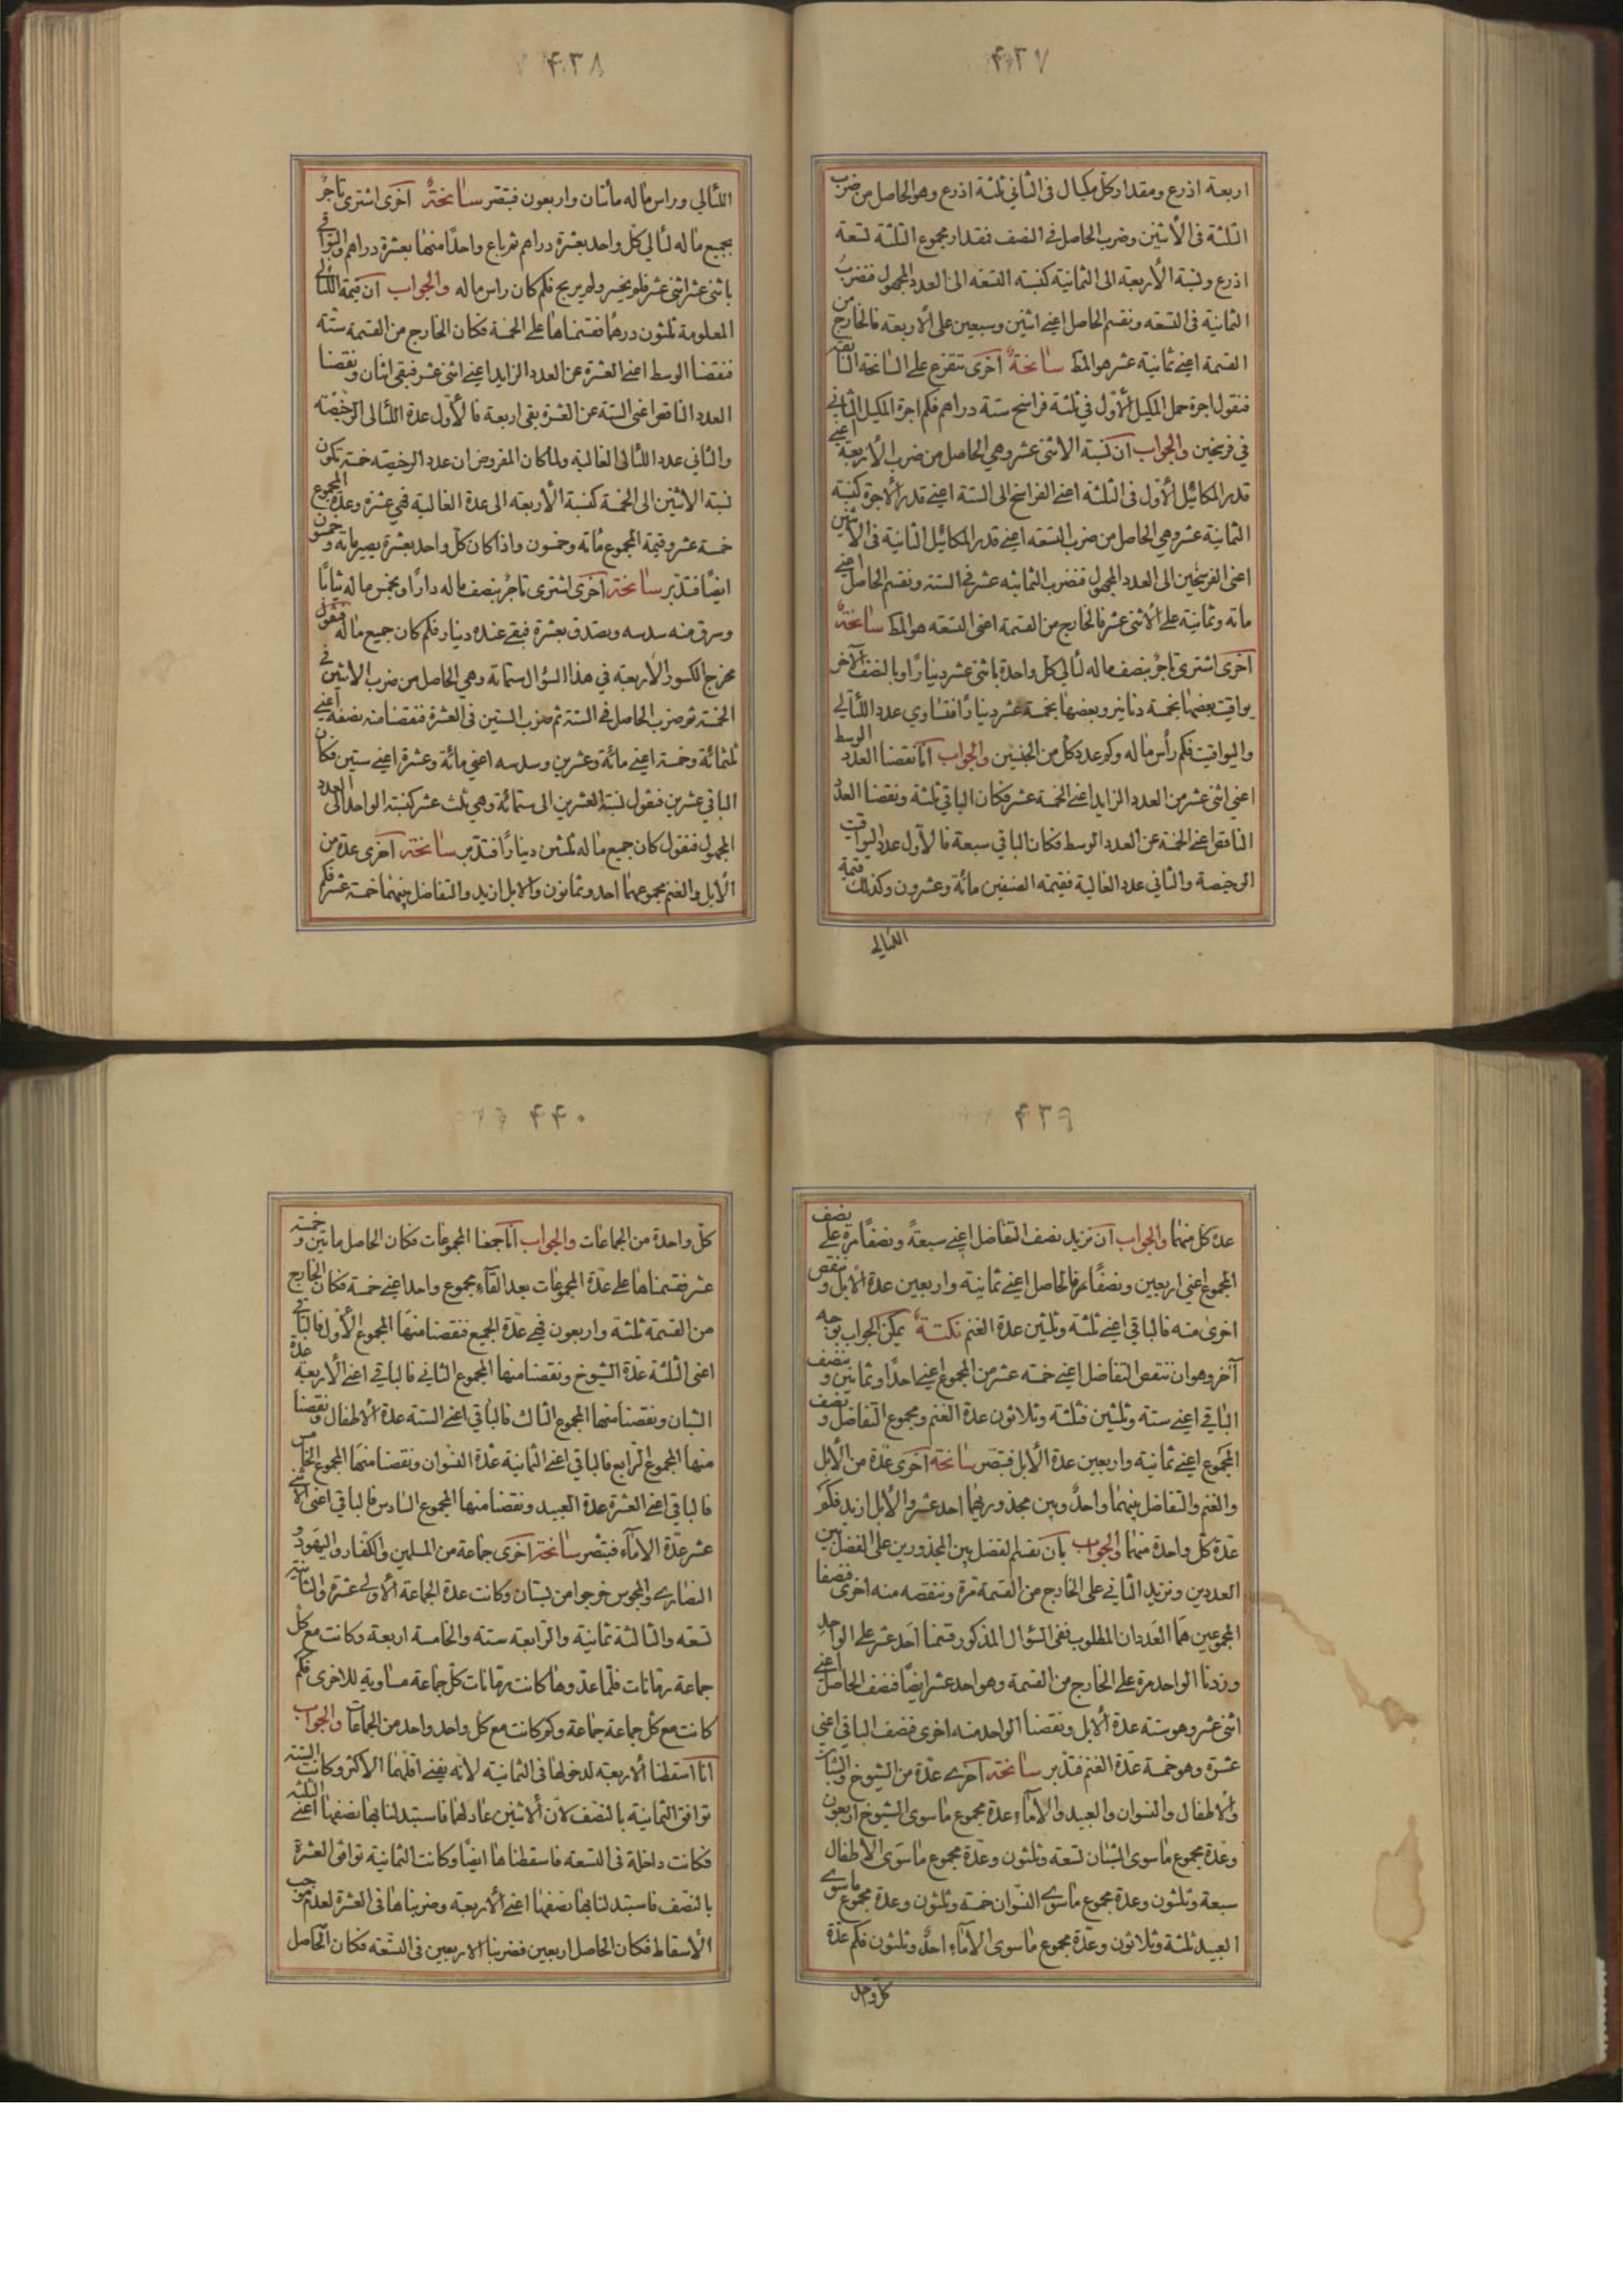 ۴۳۷
اربعة اذرع ومقدار كل مكيال فى الثاني ثلثة اذرع وهو الحاصل من ضرب
الثلثة فى الأثنين وضرب الحاصل فى النصف فمقدار مجموع الثلثة تسعة
اذرع ونسبة الأربعة الى الثمانية كنسبة التسعة الى العدد المجهول فنضرب
الثمانية فى التسعة ونقسم الحاصل اعنى اثنين وسبعين على الاربعة فالخارج من
القسمة اعنى ثمانية عشر هو المط سانحةٌ اخرى تتفرع على السانحة السابقة
فنقول اجرة حمل المكيل الأوّل فى ثلثة فراسخ ستة دراهم فكم اجرة المكيل الثانى
فى فرسخين والجواب ان نسبة الاثنى عشر وهى الحاصل من ضرب الأربعة اعنى
قدر المكائيل الأوّل فى الثلثة اعنى الفراسخ الى الستة اعنى قدر الاجرة كنسبة
الثمانية عشر وهى الحاصل من ضرب التسعة اعنى قدر المكائيل الثانية فى الاثنين
اعنى الفرسخين الى العدد المجهول فنضرب الثمانية عشر فى الستة ونقسم الحاصل اعنى
مائة وثمانية على الأثنى عشر فالخارج من القسمة اعنى التسعة هو المط سانحةٌ
اخرى اشترى تاجرٌ بنصف ماله لئالى كل واحدة باثنى عشر دينارًا وبالنصف الآخر
يواقيت بعضها بخمسة دنانير وبعضها بخمسة عشر دينارًا فتساوى عدد اللئالى
واليواقيت فكم رأس ماله وكم عدد كل من الجنسين والجواب انا نقصنا العدد الوسط
اعنى اثنى عشر من العدد الزايد اعنى الخمسة عشر فكان الباقى ثلثة ونقصنا العدد
الناقص اعنى الخمسة عن العدد الوسط فكان الباقى سبعة فالأول عدد اليواقيت
الرخيصة والثانى عدد الغالية فقيمة الصنفين مائة وعشرون وكذلك قيمة
اللئالى
۴۳۸
اللئالى وراس ماله مأتان واربعون فتبصّر سانحةٌ اخرى اشترى تاجرٌ
بجميع ماله لئالى كل واحد بعشرة دراهم ثم باع واحدًا منها بعشرة دراهم والبواقى
باثنى عشر اثنى عشر فلم يخسر ولم يربح فكم كان راس ماله والجواب ان قيمة اللئالى
المعلومة ثلثون درهمًا فقسمناها على الخمسة فكان الخارج من القسمة ستة
فنقصنا الوسط اعنى العشرة عن العدد الزايد اعنى اثنى عشر فبقى اثنان ونقصنا
العدد الناقص اعنى الستة عن العشرة بقى اربعة فالأوّل عدة اللئالى الرخيصة
والثانى عدد اللئالى الغالية ولما كان المفروض ان عدد الرخيصة خمسة تكون
نسبة الاثنين الى الخمسة كنسبة الأربعة الى عدة الغالية فهى عشرة وعدة المجموع
خمسة عشر وقيمة المجموع مائة وخمسون واذا كان كل واحد بعشرة يصير مائة وخمسون
ايضًا فتدبّر سانحة اخرى اشترى تاجرٌ بنصف ماله دارًا وبخمس ماله ثيابًا
وسرق منه سدسه وتصدق بعشرة فبقى عنده دينار فكم كان جميع ماله فنقول
مخرج الكسور الأربعة فى هذا السؤال ستمائة وهى الحاصل من ضرب الاثنين فى
الخمسة ثم ضرب الحاصل فى الستة ثم ضرب الستين فى العشرة فنقصنا منه نصفه اعنى
ثلثمائة وخمسه اعنى مائة وعشرين وسدسه اعنى مائة وعشره اعنى ستين فكان
الباقى عشرين فنقول نسبة العشرين الى ستمائة وهى ثلث عشر كنسبة الواحد الى العدد
المجهول فنقول كان جميع ماله ثلثين دينارًا فتدبّر سانحة اخرى عدة من
الأبل والغنم مجموعهما احد وثمانون والابل ازيد والتفاضل بينهما خمسة عشر فكم
۴۳۹
عدة كل منهما والجواب ان نزيد نصف التفاضل اعنى سبعةً ونصفًا مرة على نصف
المجموع اعنى اربعين ونصفًا مرة فالحاصل اعنى ثمانية واربعين عدة الأبل وننقص
اخرى منه فالباقى اعنى ثلثة وثلثين عدة الغنم نكتةٌ يمكن الجواب بوجه
آخر وهو ان ننقص التفاضل اعنى خمسة عشر من المجموع اعنى احدًا وثمانين ونصف
الباقى اعنى ستة وثلثين فثلثة وثلاثون عدة الغنم ومجموع التفاضل ونصف
المجموع اعنى ثمانية واربعين عدة الأبل فتبصّر سانحة اخرى عدة من الأبل
والغنم والتفاضل بينهما واحدٌ وبين مجذوريهما احد عشر والأبل ازيد فكم
عدة كل واحدة منهما والجواب بان نقسم الفضل بين المجذورين على الفضل بين
العددين ونزيد الثانى على الخارج من القسمة مرة وننقصه منه اخرى فنصفا
المجموعين هما العددان المطلوب ففى السؤال المذكور قسمنا احد عشر على الواحد
وزدنا الواحد مرة على الخارج من القسمة وهو احد عشر ايضًا فنصف الحاصل اعنى
اثنى عشر وهو ستة عدة الأبل ونقصنا الواحد منه اخرى فنصف الباقى اعنى
عشرة وهو خمسة عدة الغنم فتدبّر سانحة اخرى عدة من الشيوخ والشبان
والاطفال والنسوان والعبيد والآماء عدة مجموع ماسوى الشيوخ اربعون
وعدة مجموع ماسوى الشبّان تسعة وثلثون وعدة مجموع ماسوى الاطفال
سبعة وثلثون وعدة مجموع ماسوى النسوان خمسة وثلثون وعدة مجموع ماسوى
العبيد ثلثة وثلاثون وعدة مجموع ماسوى الآماء احدٌ وثلثون فكم عدة
كل واحد
۴۴۰
كل واحدة من الجماعات والجواب انا جمعنا المجموعات فكان الحاصل مأتين وخمسة
عشر فقسمناها على عدة المجموعات بعد القآء مجموع واحد اعنى خمسة فكان الخارج
من القسمة ثلثة واربعون فهى عدة الجميع فنقصنا منها المجموع الأوّل فالباقى
اعنى الثلثة عدة الشيوخ ونقصنا منها المجموع الثانى فالباقى اعنى الأربعة عدة
الشبان ونقصنا منها المجموع الثالث فالباقى اعنى الستة عدة الأطفال ونقصنا
منها المجموع الرّابع فالباقى اعنى الثمانية عدة النسوان ونقصنا منها المجموع الخامس
فالباقى اعنى العشرة عدة العبيد ونقصنا منها المجموع السادس فالباقى اعنى الاثنى
عشر عدة الاماء فتبصّر سانحة اخرى جماعة من المسلمين والكفار واليهود و
النصارى والمجوس خرجوا من بستان وكانت عدة الجماعة الأولى عشرة والثانية
تسعة والثالثة ثمانية والرابعة ستة والخامسة اربعة وكانت مع كل
جماعة رمّانات فلما عدّوها كانت رمّانات كل جماعة مساوية للاخرى فكم
كانت مع كل جماعة جماعة وكم كانت مع كل واحد واحد من الجماعات والجواب
انا اسقطنا الأربعة لدخولها فى الثمانية لانه يفنى اقلهما الاكثر وكانت الستة
توافق الثمانية بالنصف لان الاثنين عاد لهما فاستبدلنا بها نصفها اعنى الثلثة
فكانت داخلة فى التسعة فاسقطناها ايضًا وكانت الثمانية توافق العشرة
بالنصف فاستبدلنا بها نصفها اعنى الأربعة وضربناها فى العشرة لعدم موجب
الأسقاط فكان الحاصل اربعين فضربنا الاربعين فى التسعة فكان الحاصل